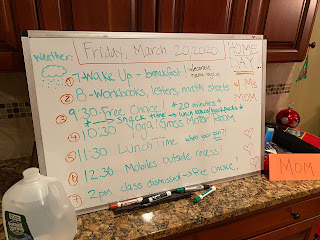 Friday, March 20 2020
HOME DAY
weather:
① 7 - Wake Up - breakfast!
② 8 - Workbooks, letters, math sheets
4 Ms MOM
③ 9:30 - Free Choice! * 20 minutes
* → snack time →
④ 10:30 Yoga/Gross Motor Room
⑤ 11:30 Lunch Time
⑥ 12:30 Mobiles outside recess!
⑦ 2pm class dismissed → Free choice.
MOM